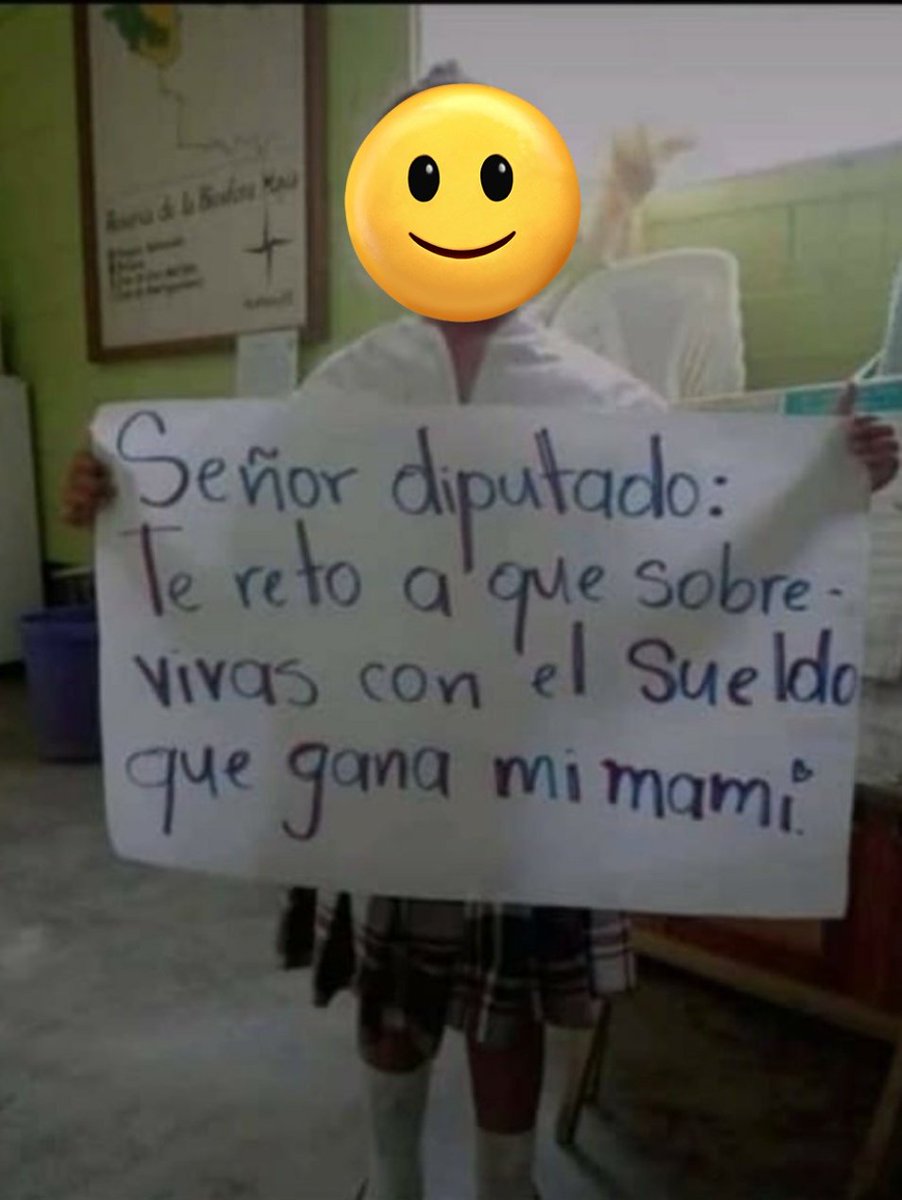 Reserva de la Biosfera Maya
Señor diputado:
Te reto a que sobre-
vivas con el sueldo
que gana mi mami.